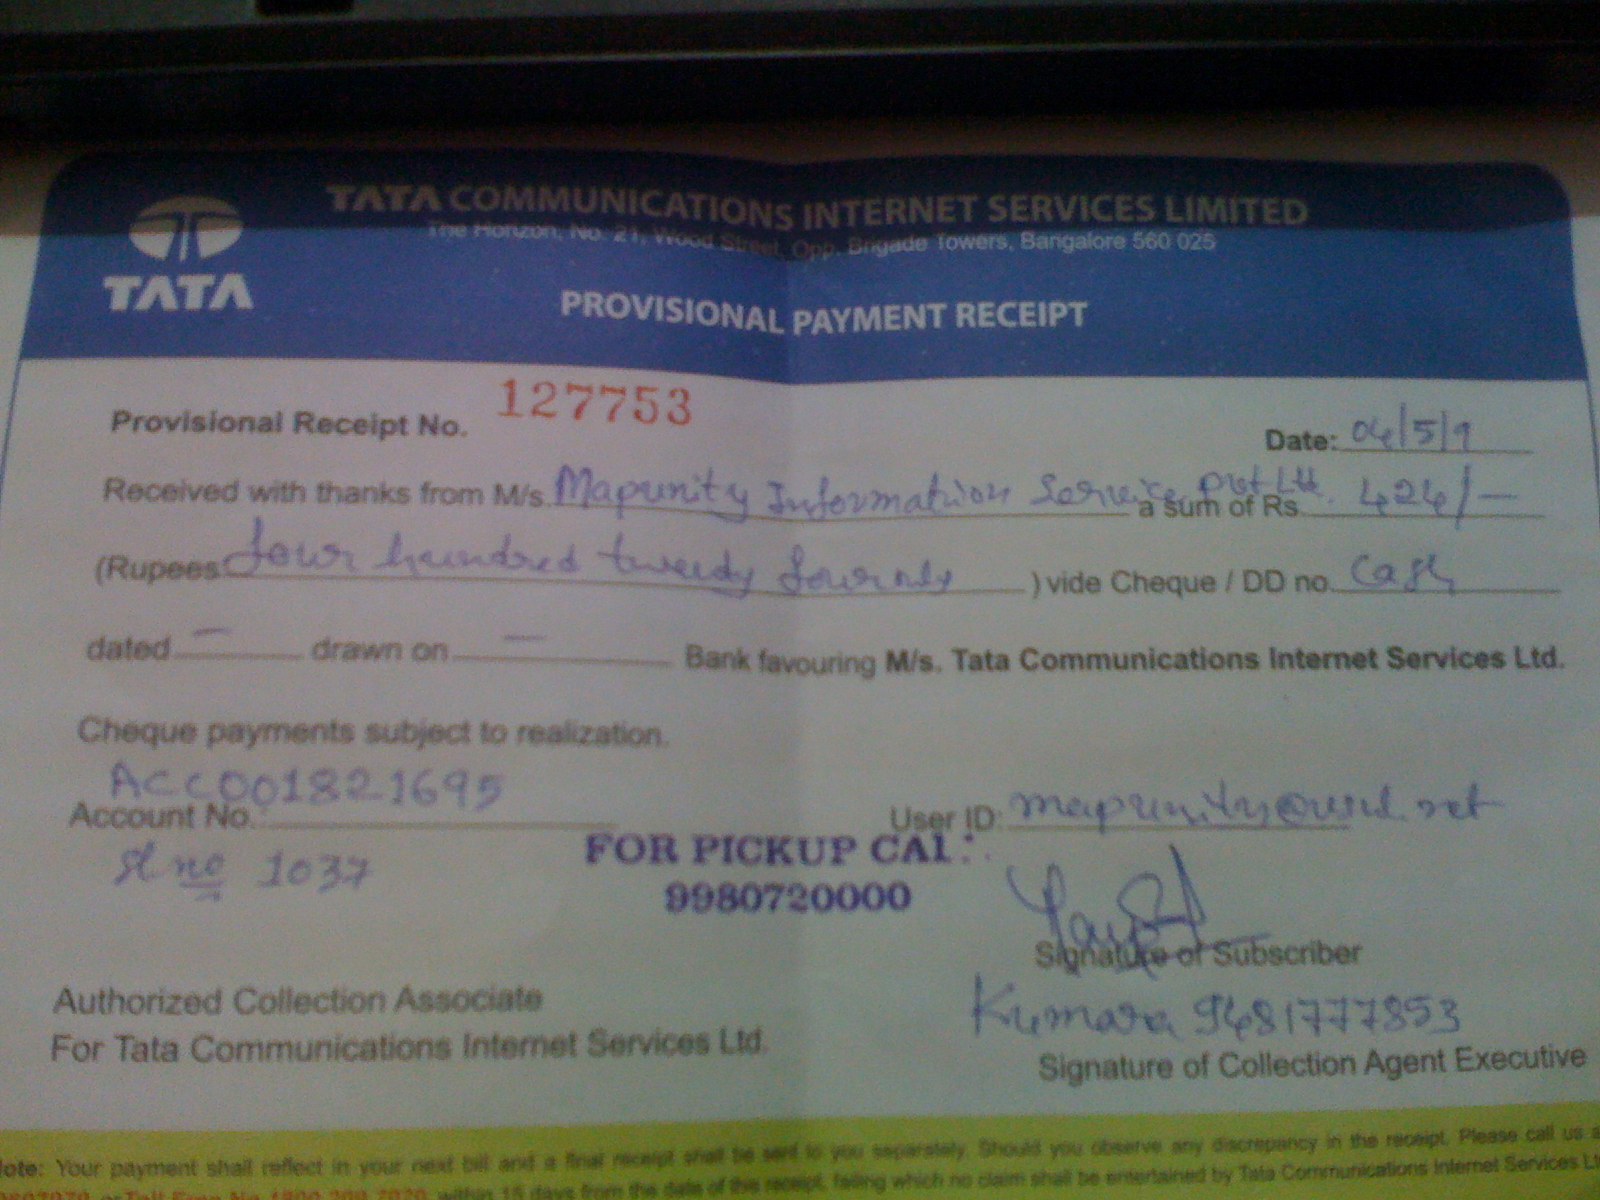 TATA COMMUNICATIONS INTERNET SERVICES LIMITED
The Horizon, No. 21, Wood Street, Opp. Brigade Towers, Bangalore 560 025
TATA
PROVISIONAL PAYMENT RECEIPT
Provisional Receipt No. 127753 Date: 04/5/9
Received with thanks from M/s. Mapunity Information Services pvt Ltd. a sum of Rs. 424/-
(Rupees four hundred twenty four only ) vide Cheque / DD no. Cash
dated — drawn on — Bank favouring M/s. Tata Communications Internet Services Ltd.
Cheque payments subject to realization.
ACC001821695
Account No. User ID: mapunity@vsnl.net
sl no 1037
FOR PICKUP CALL:
9980720000
Signature of Subscriber
Authorized Collection Associate
Kumara 9481777853
For Tata Communications Internet Services Ltd. Signature of Collection Agent Executive
Note: Your payment shall reflect in your next bill and a final receipt shall be sent to you separately. Should you observe any discrepancy in the receipt, Please call us
or Toll Free No. 1800 within 15 days from the date of this receipt, failing which no claim shall be entertained by Tata Communications Internet Services